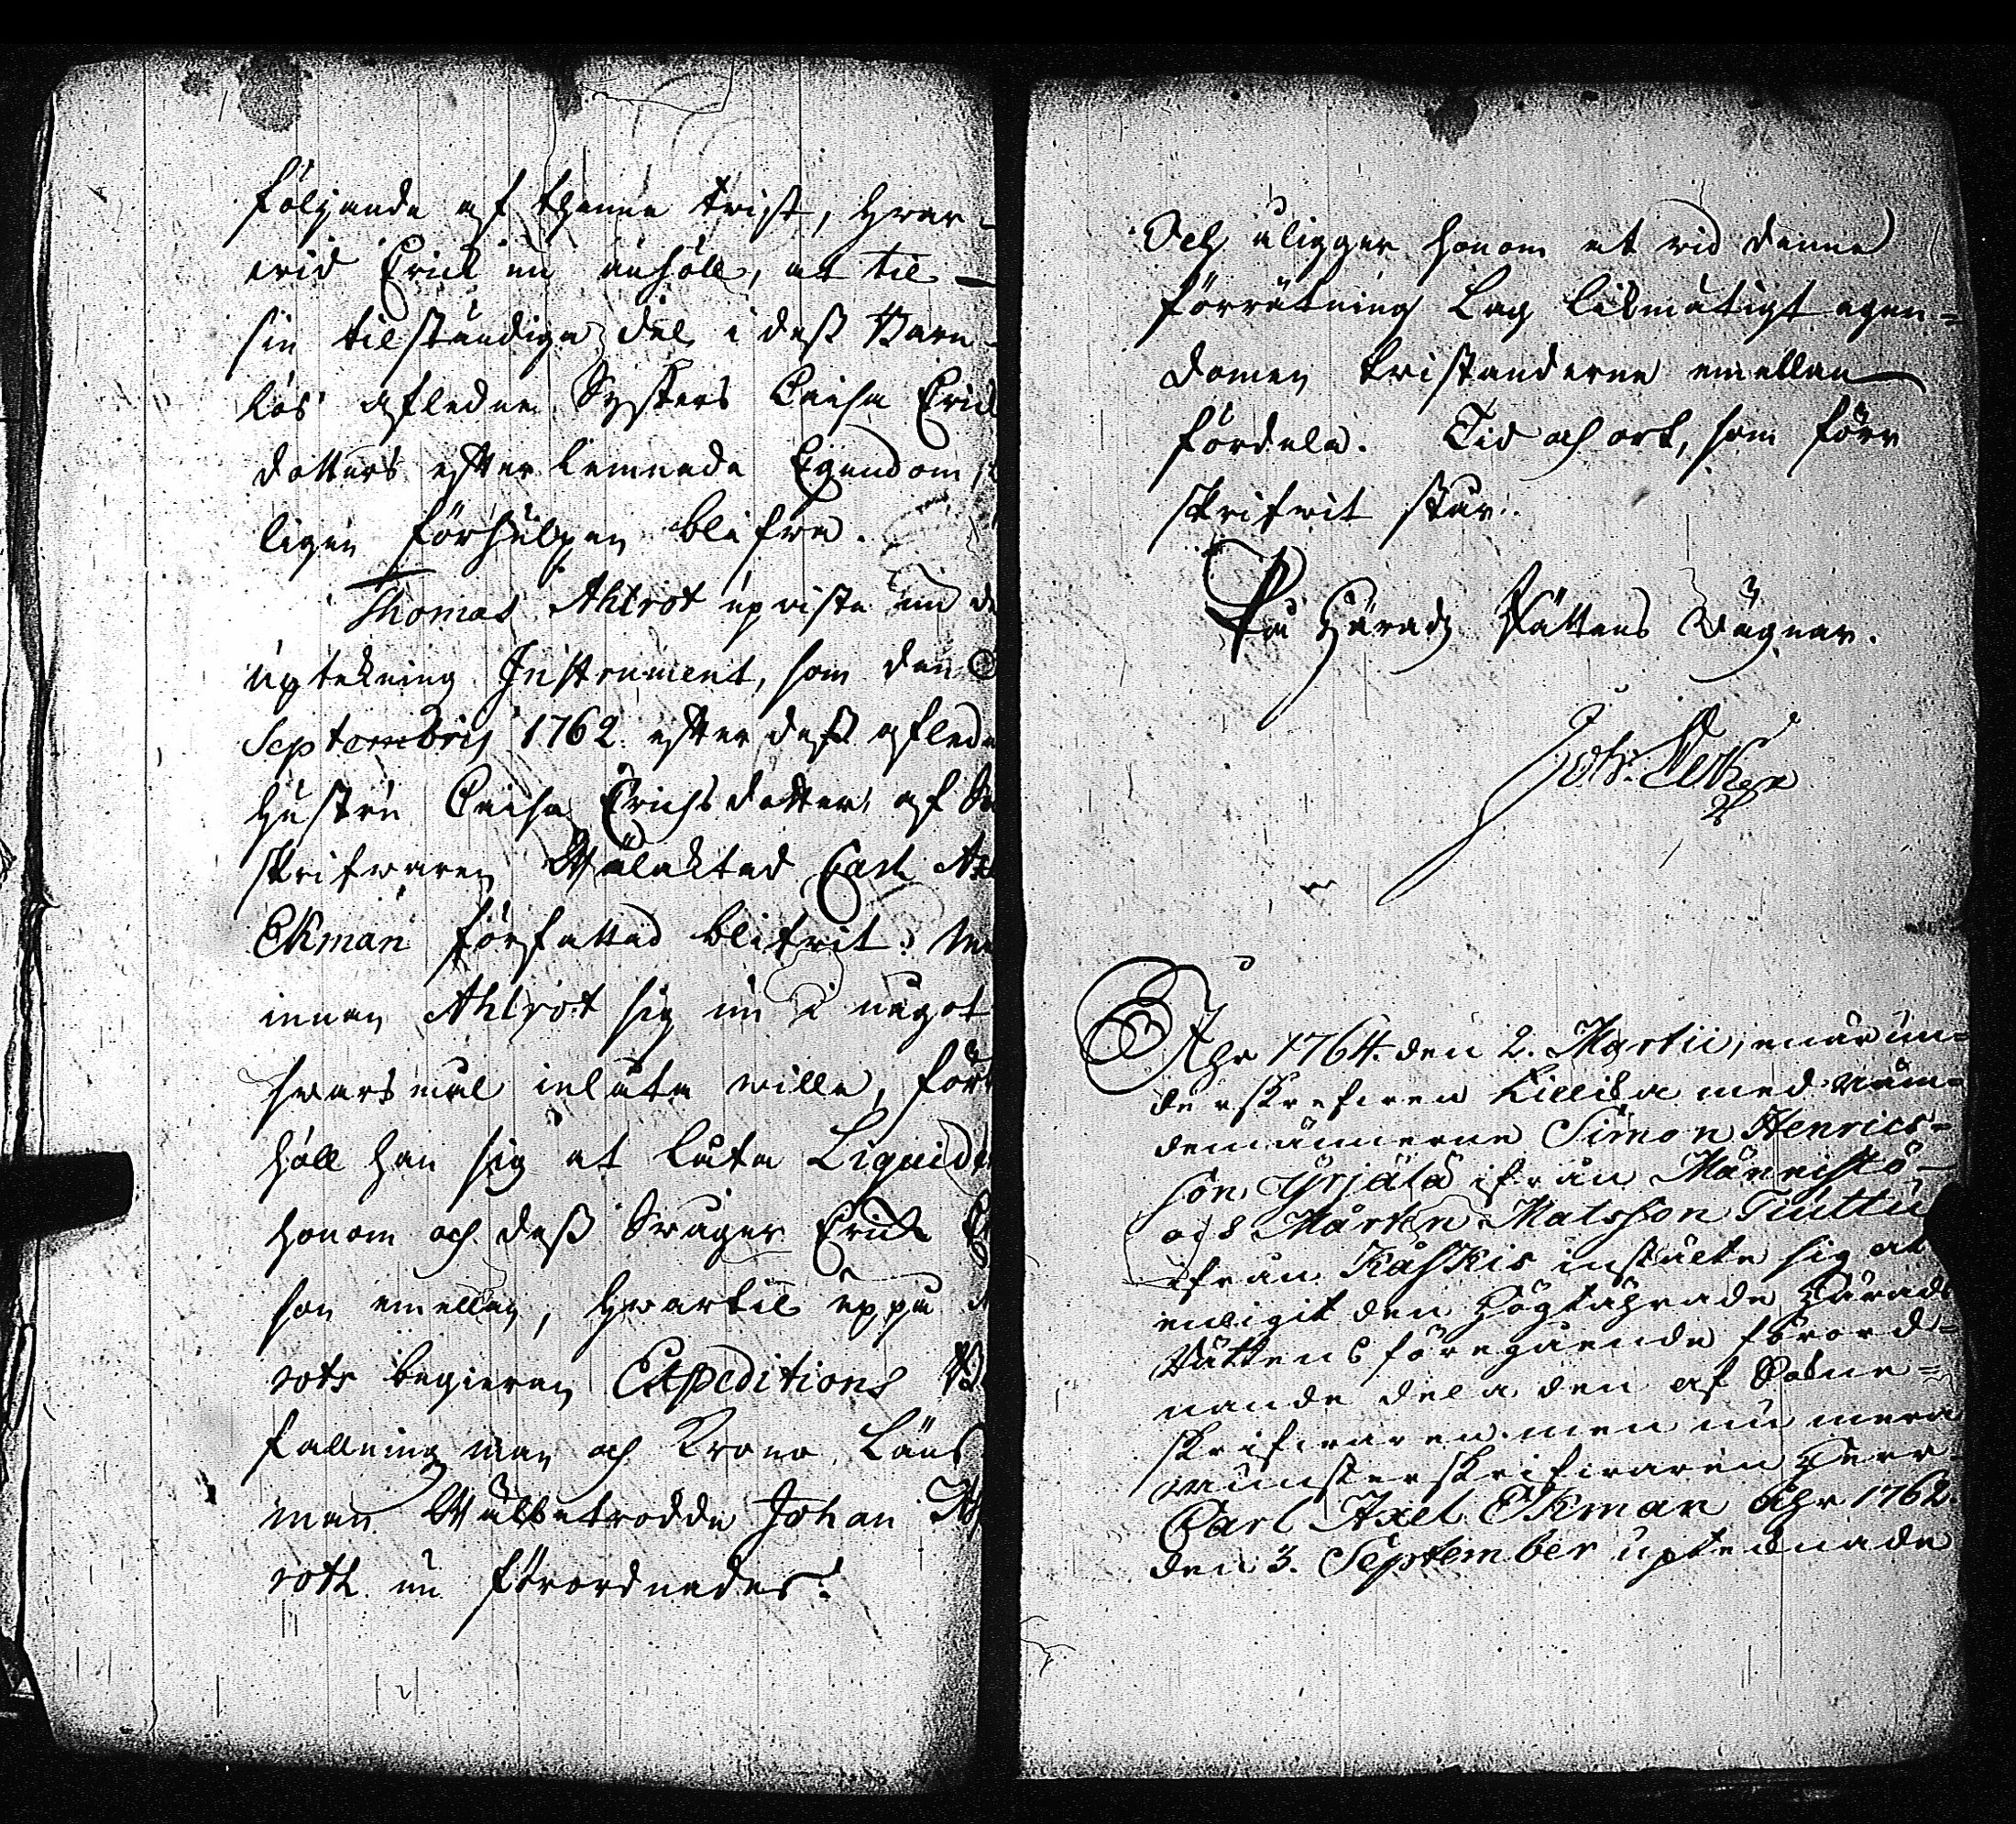 följande af thenne twist, hwar-
wid Erick nu anhöll, at til
sin tilständiga del i dess Barn-
lös afledne Systers Caisa Erick
dotters efterlemnade Egendom
ligen förhulpen blifwa.
Thomas Ahlrot upwiste nu
uptekning Instrument, som den
Septembris 1762 efter dess afledn
Hustru Caisa Erichsdotter, af
skrifwaren Wälaktad Carl Ax
Ekman författad blifwit:
innan Ahlrot sig nu i något
swarsmål inlåta wille, för
höll han sig at låta Liquide
honom och dess Swåger Erick
son emellan, hwartil uppå
rots begieran Expeditions
fallning man och Krono Läns
man Wälbetrodde Johan
roth nu förordnades.
Och åligger honom at wid denne
förrätning Lag likmätigt egen=
domen twistanderne emellan
fördela. Tid och ort, som förr
skrifwit står.
På Härads Rättens Wägnar.
Åhr 1764. den 2. Martii, enär un=
derskrefwen Killika med näm=
demännerne Simon Henrics=
son Yrjälä ifrån Männistö
och Mårten Matsson Tiuttu
ifrån Kaskis instälte sig at
enligit den Högtährade Härads
Rättens föregående förord=
nande dela den af Sokne=
skrifwaren men nu mera
Münsterskrifwaren Herr
Carl Axel Ekman Åhr 1762.
den 3. September upteknade